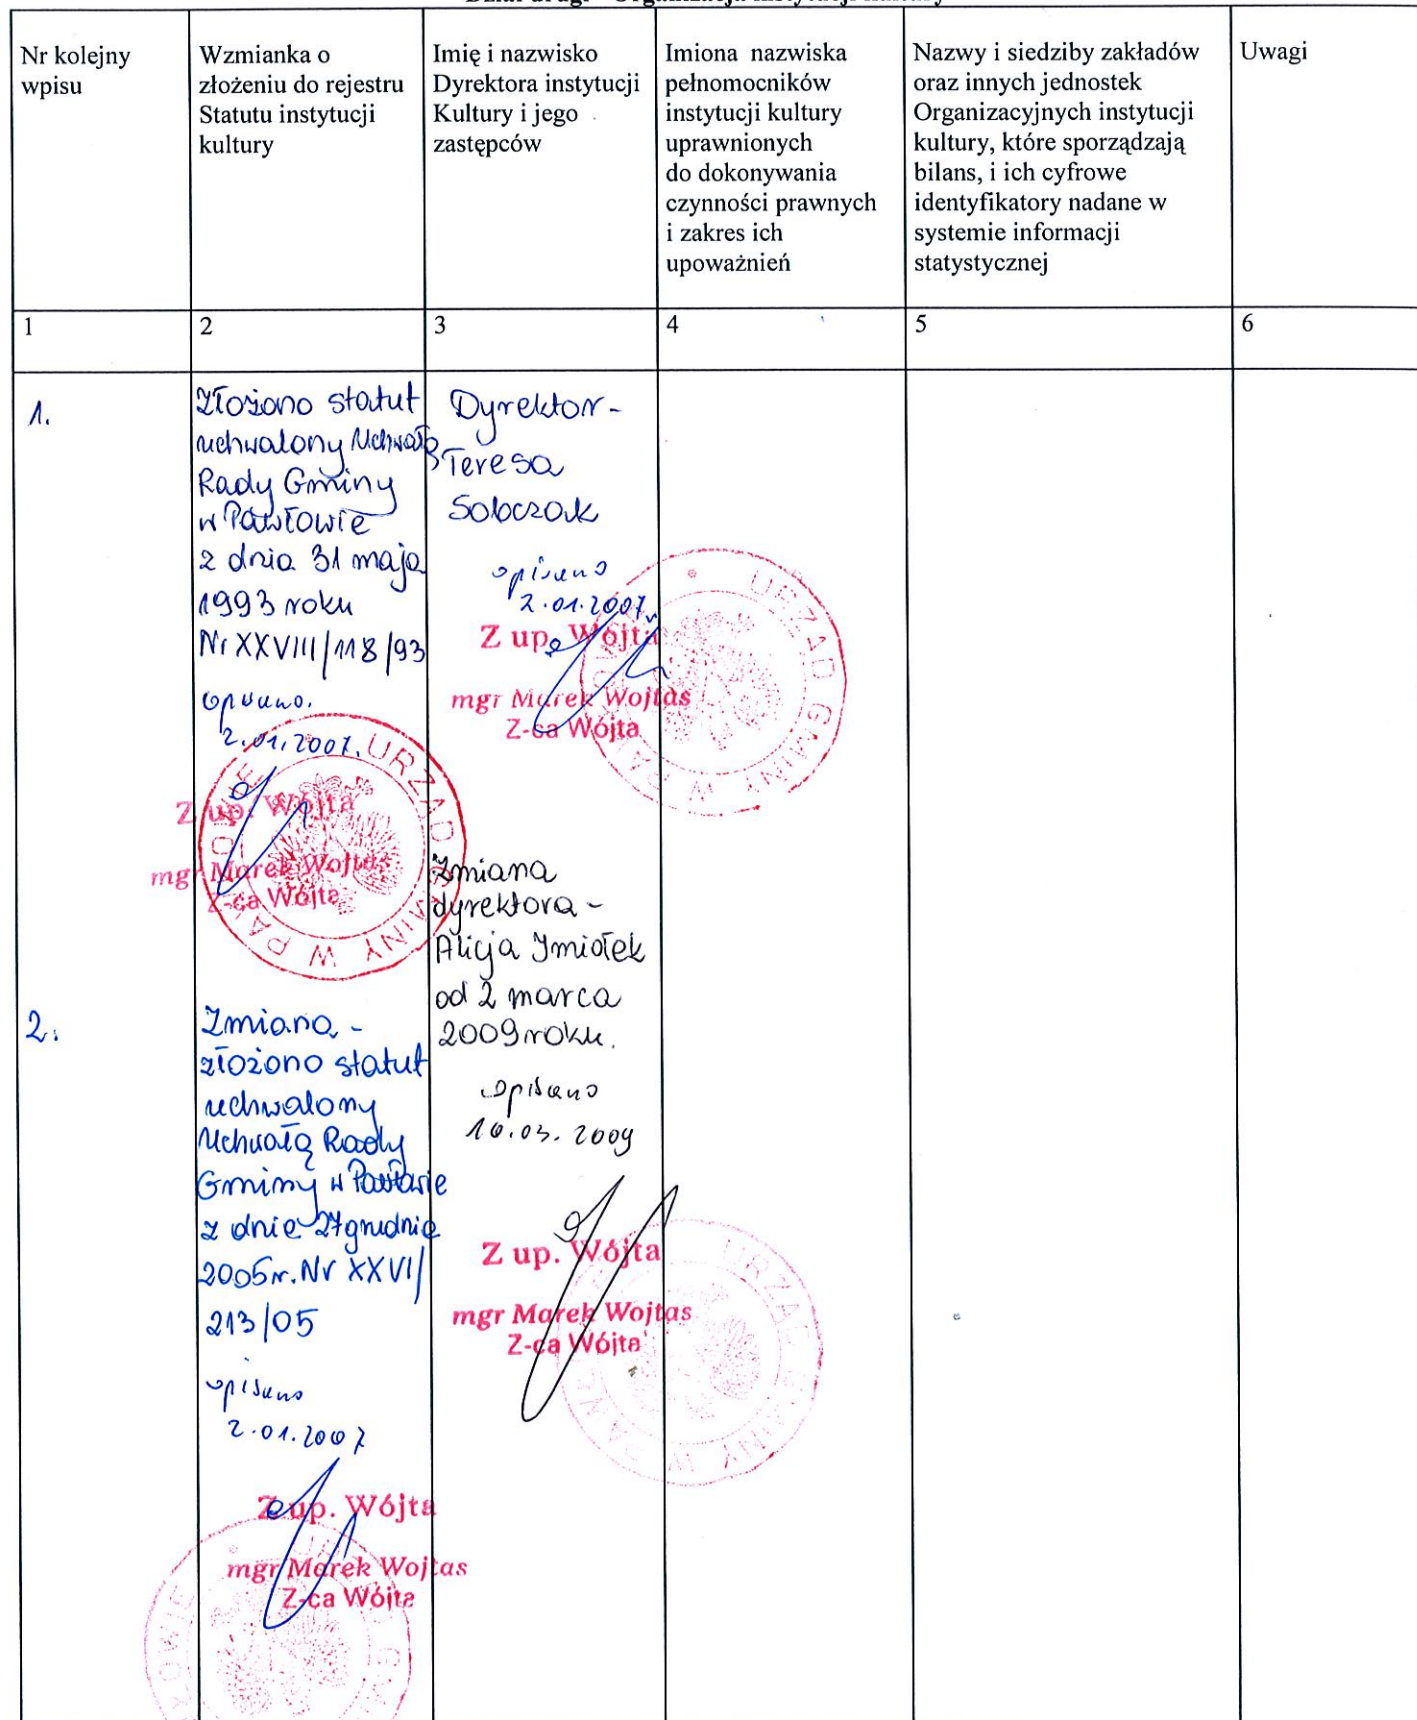 Dział drugi - Organizacja instytucji kultury
Nr kolejny
wpisu
Wzmianka o
złożeniu do rejestru
Statutu instytucji
kultury
Imię i nazwisko
Dyrektora instytucji
Kultury i jego
zastępców
Imiona nazwiska
pełnomocników
instytucji kultury
uprawnionych
do dokonywania
czynności prawnych
i zakres ich
upoważnień
Nazwy i siedziby zakładów
oraz innych jednostek
Organizacyjnych instytucji
kultury, które sporządzają
bilans, i ich cyfrowe
identyfikatory nadane w
systemie informacji
statystycznej
Uwagi
1
2
3
4
5
6
1.
Złożono statut
uchwalony Uchwałą
Rady Gminy
w Pawłowie
z dnia 31 maja
1993 roku
Nr XXVIII/118/93
opisano.
2.01.2007.
Z up. Wójta
mgr Marek Wojtas
Z-ca Wójta
URZĄD GMINY W PAWŁOWIE
Dyrektor -
Teresa
Sobczak
opisano
2.01.2007r
Z up. Wójta
mgr Marek Wojtas
Z-ca Wójta
URZĄD GMINY W PAWŁOWIE
Zmiana
dyrektora -
Alicja Imiołek
od 2 marca
2009 roku.
opisano
10.03.2009
Z up. Wójta
mgr Marek Wojtas
Z-ca Wójta
URZĄD GMINY W PAW
2.
Zmiana -
złożono statut
uchwalony
Uchwałą Rady
Gminy w Pawłowie
z dnia 27 grudnia
2005r. Nr XXVI/
213/05
opisano
2.01.2007
Z up. Wójta
mgr Marek Wojtas
Z-ca Wójta